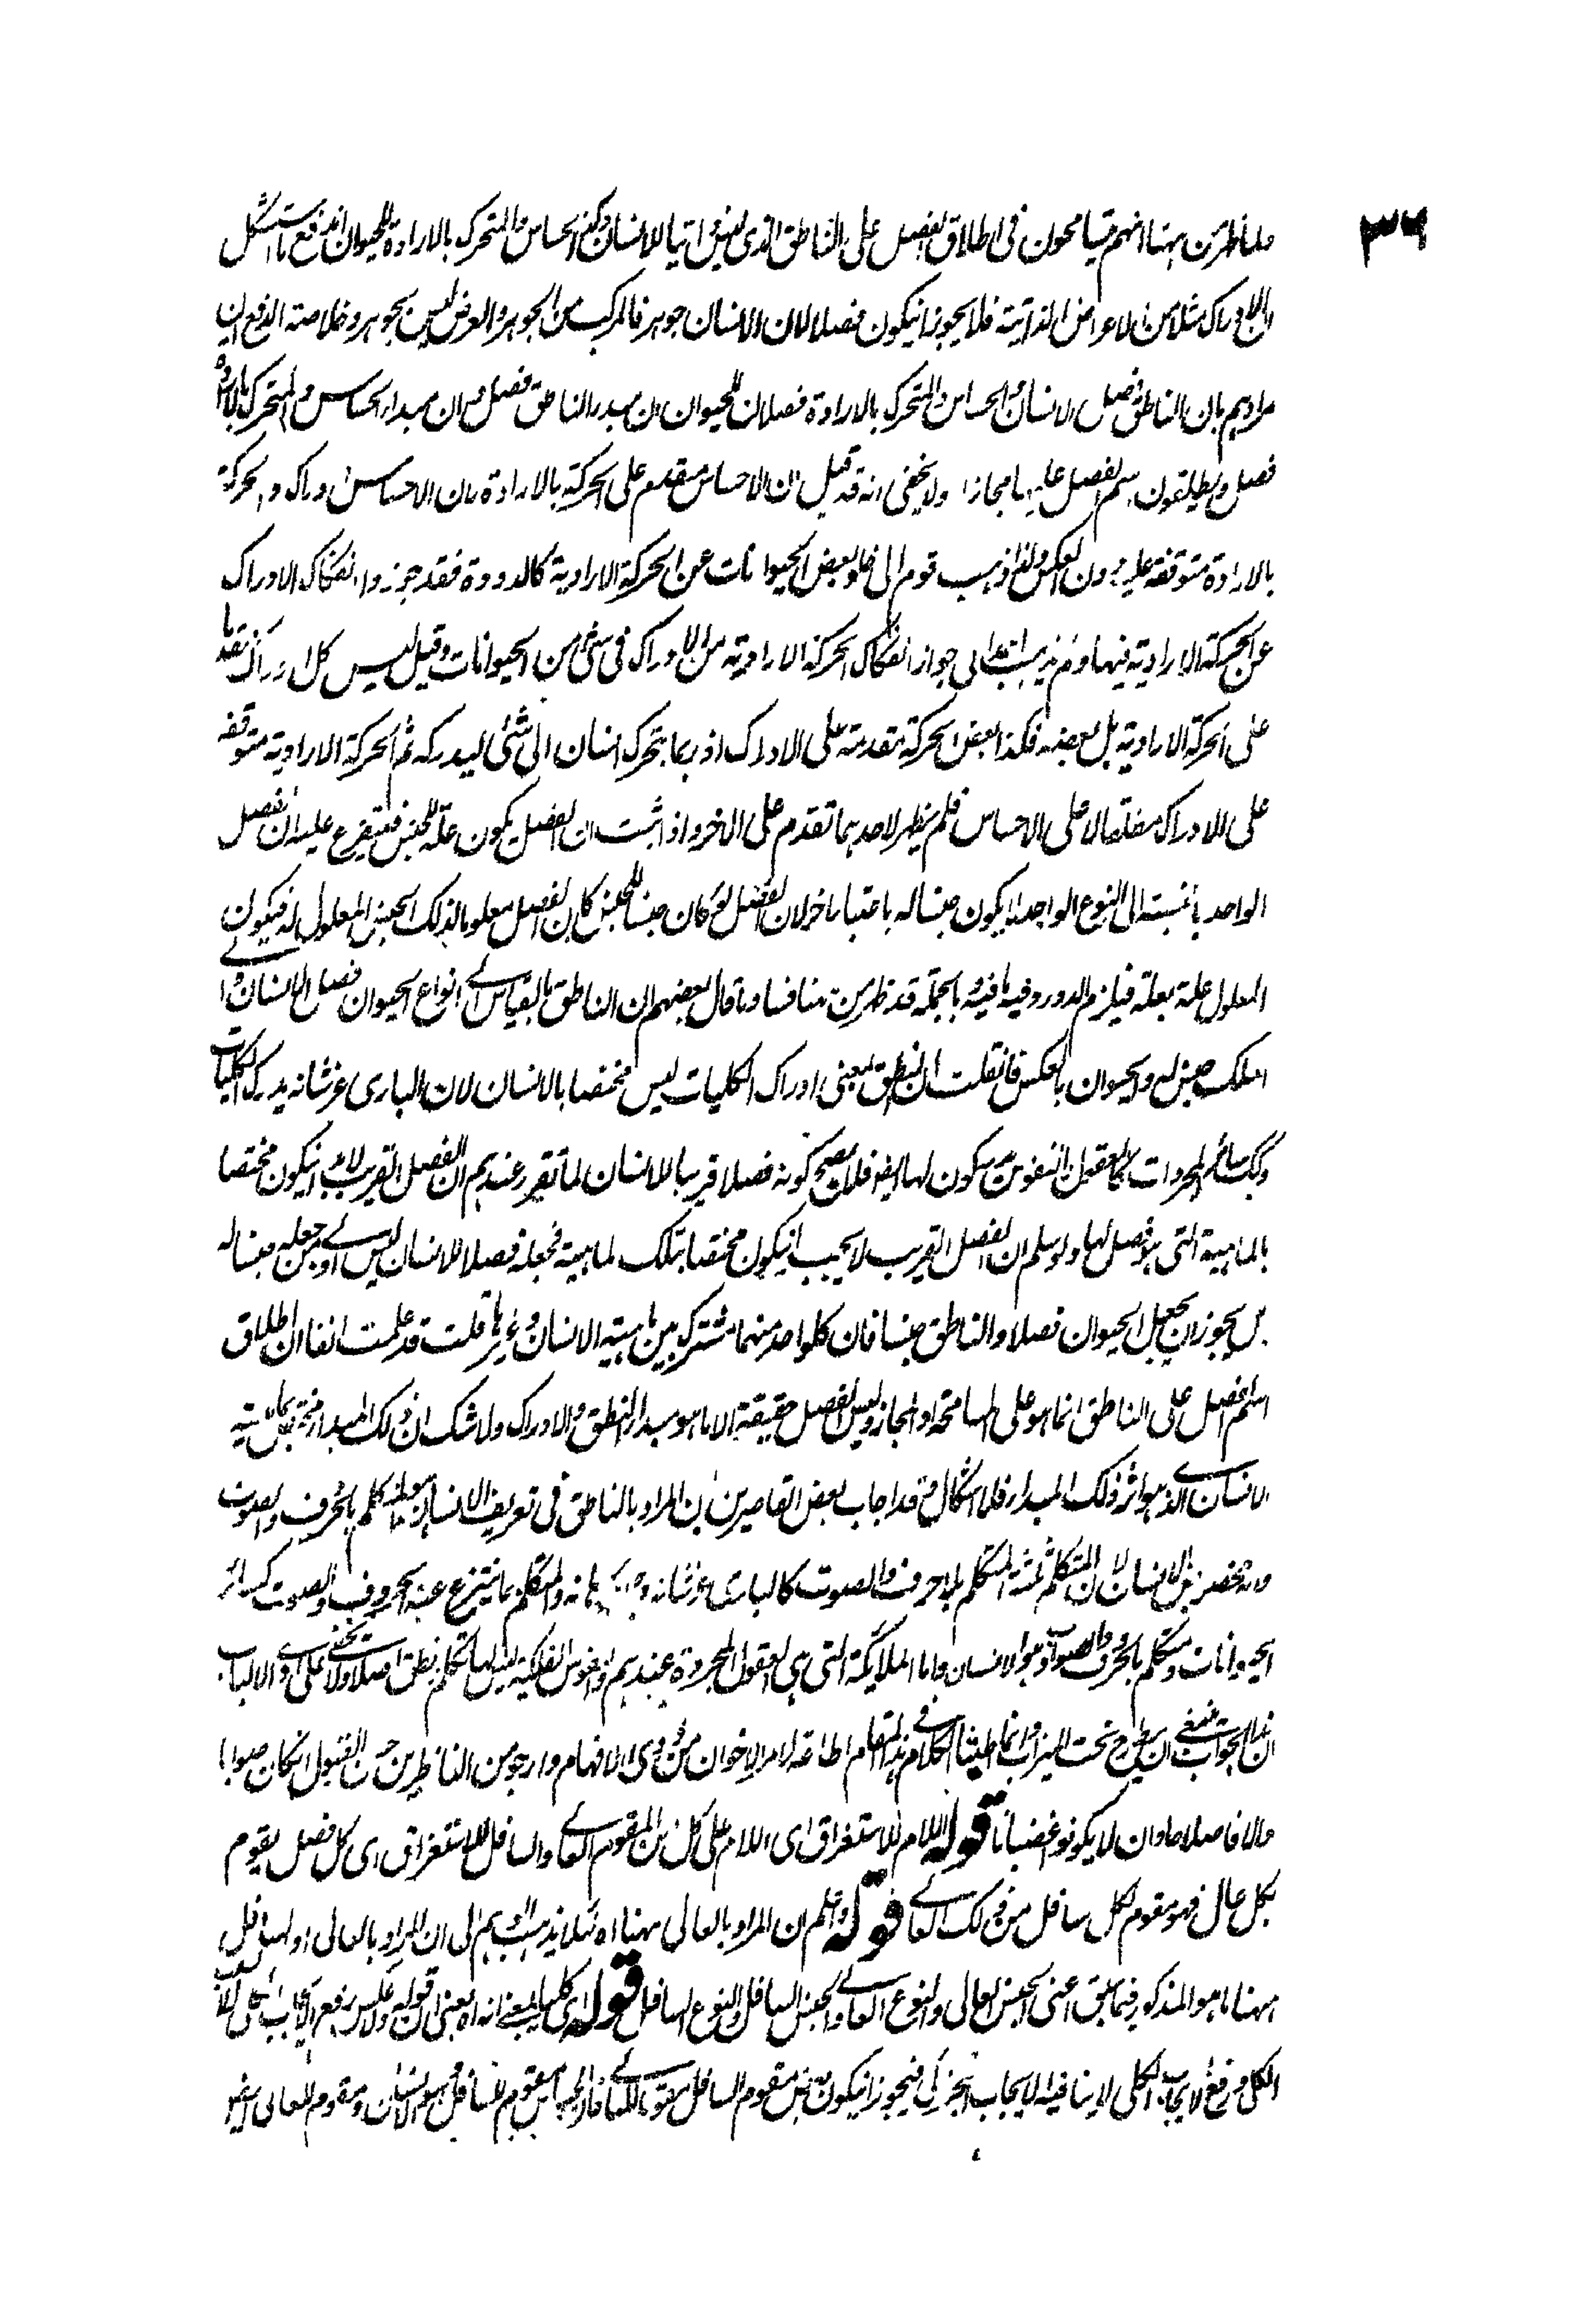 ٣٦
ولما ظهر من ههنا انهم يتسامحون فى اطلاق الفصل على الناطق الذى ليس ذاتيا للانسان وكذا الحساس والمتحرك بالارادة للحيوان اندفع ما استشكل
بان الادراك مثلا من الاعراض الذاتية فلا يجوز ان يكون فصلا لان الانسان جوهر فالمركب من الجوهر والعرض ليس بجوهر وخلاصة الدفع ان
مرادهم بان الناطق فصل الانسان والحساس والمتحرك بالارادة فصلان للحيوان ان مبدء الناطق فصل وان مبدء الحساس والمتحرك بالارادة
فصل ويطلقون اسم الفصل عليها مجازا ولا يخفى انه قد قيل ان الاحساس مقدم على الحركة بالارادة فان الاحساس ادراك والحركة
بالارادة متوقفة عليه دون العكس ولذا ذهب قوم الى خلو بعض الحيوانات عن الحركة الارادية كالدودة فقد جوزوا انفكاك الادراك
عن الحركة الارادية فيها ولم يذهب احد الى جواز انفكاك الحركة الارادية من الادراك فى شئ من الحيوانات وقيل ليس كل ادراك متقدما
على الحركة الارادية بل بعضه فكذا بعض الحركة متقدمة على الادراك اذ ربما يتحرك انسان الى شئى ليدركه ثم الحركة الارادية متوقفة
على الادراك مطلقا لا على الاحساس فلم يظهر لاحدهما تقدم على الاخر واذا ثبت ان الفصل يكون علة للجنس فيتفرع عليه ان الفصل
الواحد بالنسبة الى النوع الواحد لا يكون جنسا له باعتبار اخر لان الفصل لو كان جنسا للجنس كان الفصل معلولا لذلك الجنس المعلول له فيكون
المعلول علة بعلته فيلزم الدور وفيه ما فيه وبالجملة قد ظهر من هنا فساد ما قال بعضهم ان الناطق بالقياس الى انواع الحيوان فصل للانسان و
الملك جنس له والحيوان بالعكس فان قلت ان النطق بمعنى ادراك الكليات ليس مختصا بالانسان لان البارى عز شانه يدرك الكليات
وكذلك سائر المجردات كالعقول والنفوس يكون لها ايضا فلا يصح كونه فصلا قريبا للانسان لما تقرر عندهم ان الفصل القريب لابد ان يكون مختصا
بالماهية التى هو فصل لها ولو سلم ان الفصل القريب لا يجب ان يكون مختصا بتلك الماهية فجعله فصلا للانسان ليس اولى من جعله جنسا له
بل يجوز ان يجعل الحيوان فصلا والناطق جنسا فان كلا واحد منهما مشترك بين ماهية الانسان وغيرها قلت قد علمت انفا ان اطلاق
اسم الفصل على الناطق انما هو على المسامحة او المجاز وليس الفصل حقيقة الا ما هو مبدء النطق والادراك ولا شك ان ذلك المبدء مختص بماهية
الانسان الذى هو اثر ذلك المبدء فلا اشكال وقد اجاب بعض القاصرين بان المراد بالناطق فى تعريف الانسان هو المتكلم بالحرف والصوت
وانه مختص بالانسان لان المتكلم ثلثة المتكلم بلا حرف والصوت كالبارى عز شانه والمتكلم بما ينتزع عنه الحروف والصوت كسائر
الحيوانات ومتكلم بالحرف والصوت وهو الانسان واما الملائكة التى هى العقول المجردة عندهم والنفوس الفلكية ليس لها تكلم نطق اصلا ولا يخفى على اولى الالباب
ان هذا الجواب ينبغى ان يطرح تحت الميزاب وانما اطبنا الكلام فى هذا المقام اطاعة لامر الاخوان من ذوى الافهام وارجو من الناظرين حسن القبول ان كان صوابا
والا فاصلاحا وان لا يكونوا غضبانا قوله اللام للاستغراق اى اللام على كل من المقوم العالى والسافل للاستغراق اى كل فصل يقوم
بكل عال فهو مقوم لكل سافل من ذلك العالى قوله واعلم ان المراد بالعالى ههنا اه لئلا يذهب الوهم الى ان المراد بالعالى او السافل
ههنا ما هو المذكور فيما سبق اعنى الجنس العالى والنوع العالى والجنس السافل والنوع السافل قوله اى كليا بمعنى انه اه يعنى ان قوله ولا عكس رفع الايجاب الكلى لان
الكلى ورفع الايجاب الكلى لا ينافيه الايجاب الجزئى فيجوز ان يكون بعض مقوم السافل مقوما للعالى فان الحساس مقوم للسافل هو الانسان ومقوم للعالى ايضا